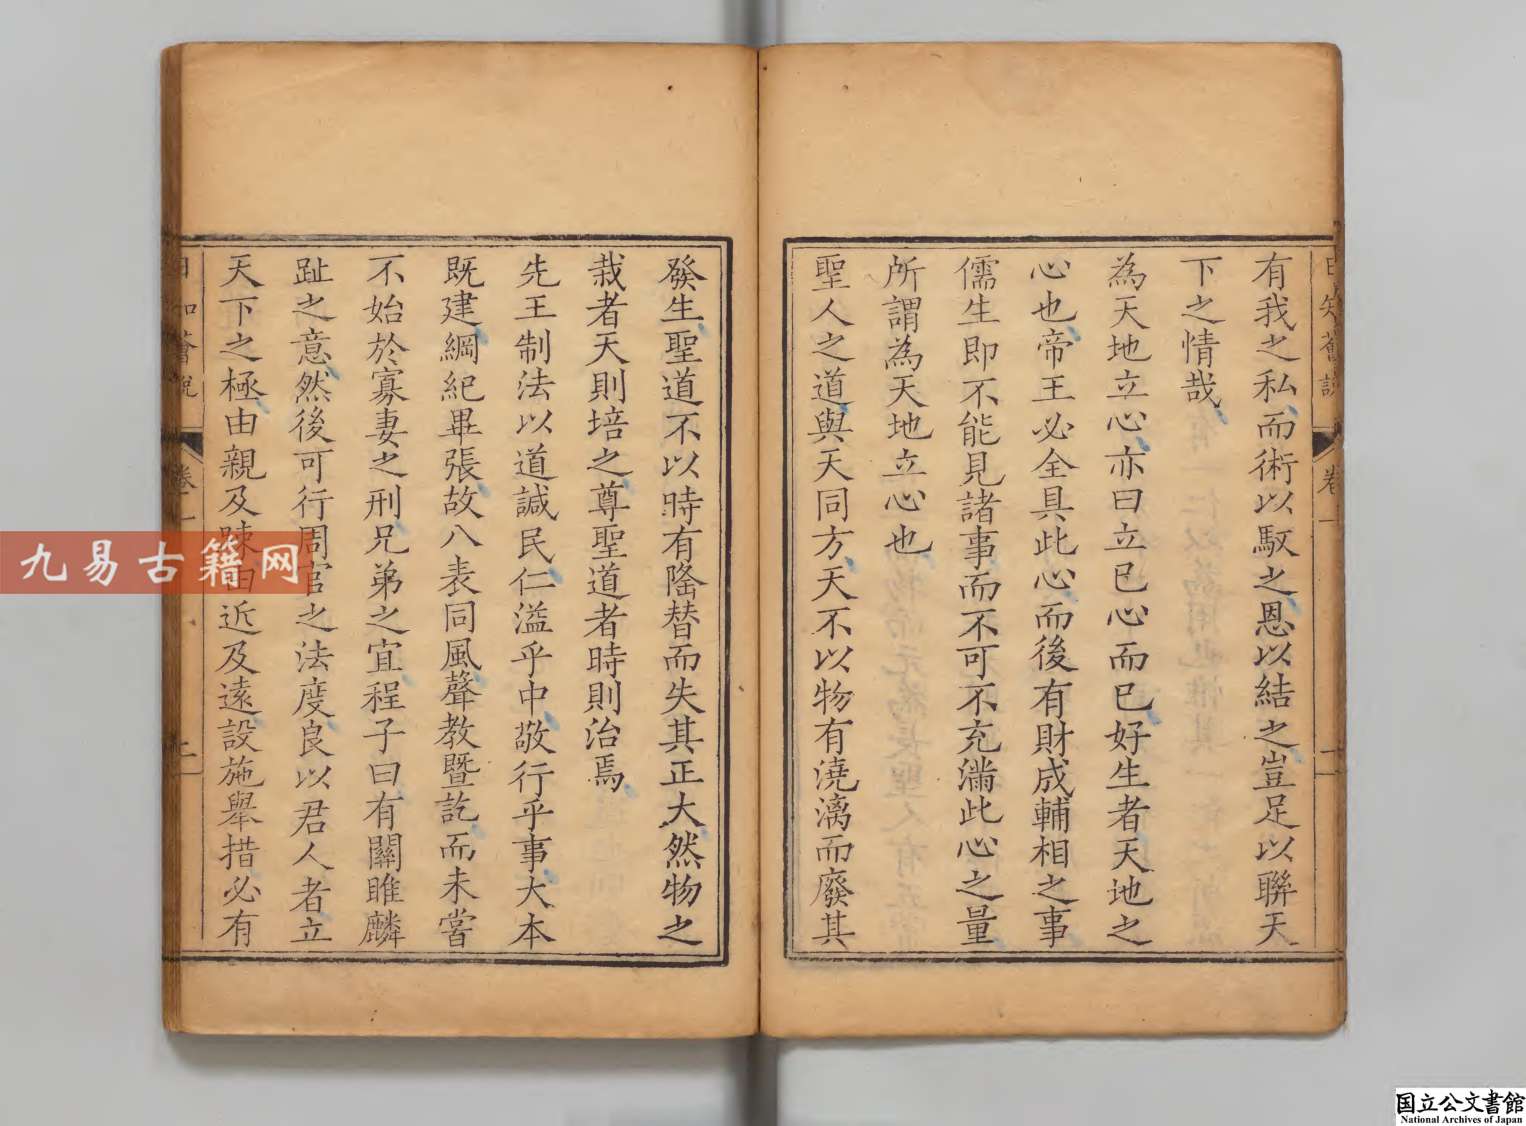 日知薈說 卷一
有我之私而術以馭之恩以結之豈足以聯天
下之情哉
為天地立心亦曰立已心而已好生者天地之
心也帝王必全具此心而後有財成輔相之事
儒生即不能見諸事而不可不充滿此心之量
所謂為天地立心也
聖人之道與天同方天不以物有澆漓而廢其
發生聖道不以時有隆替而失其正大然物之
栽者天則培之尊聖道者時則治焉
先王制法以道諴民仁溢乎中敬行乎事大本
既建綱紀畢張故八表同風聲教暨訖而未嘗
不始於寡妻之刑兄弟之宜程子曰有關雎麟
趾之意然後可行周官之法度良以君人者立
天下之極由親及疎由近及遠設施舉措必有
日知薈說 卷一
九易古籍网
国立公文書館
National Archives of Japan